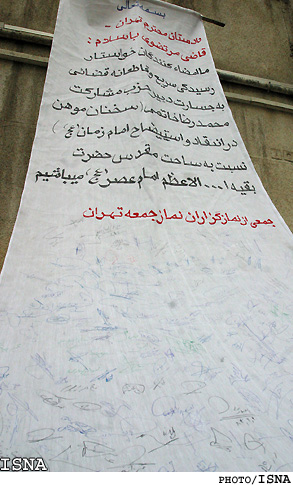 بسمه تعالی
دادستان محترم تهران -
قاضی مرتضوی باسلام :
ما امضاء کنندگان خواستار
رسیدگی سریع و قاطعانه قضائی
به جسارت دبیر حزب مشارکت
محمد رضا خاتمی (سخنان موهن
در انتقاد و استیضاح امام زمان (عج)
نسبت به ساحت مقدس حضرت
بقیه ا... الاعظم امام عصر (عج) میباشیم
جمعی از نمازگزاران نماز جمعه تهران
ISNA
PHOTO/ISNA